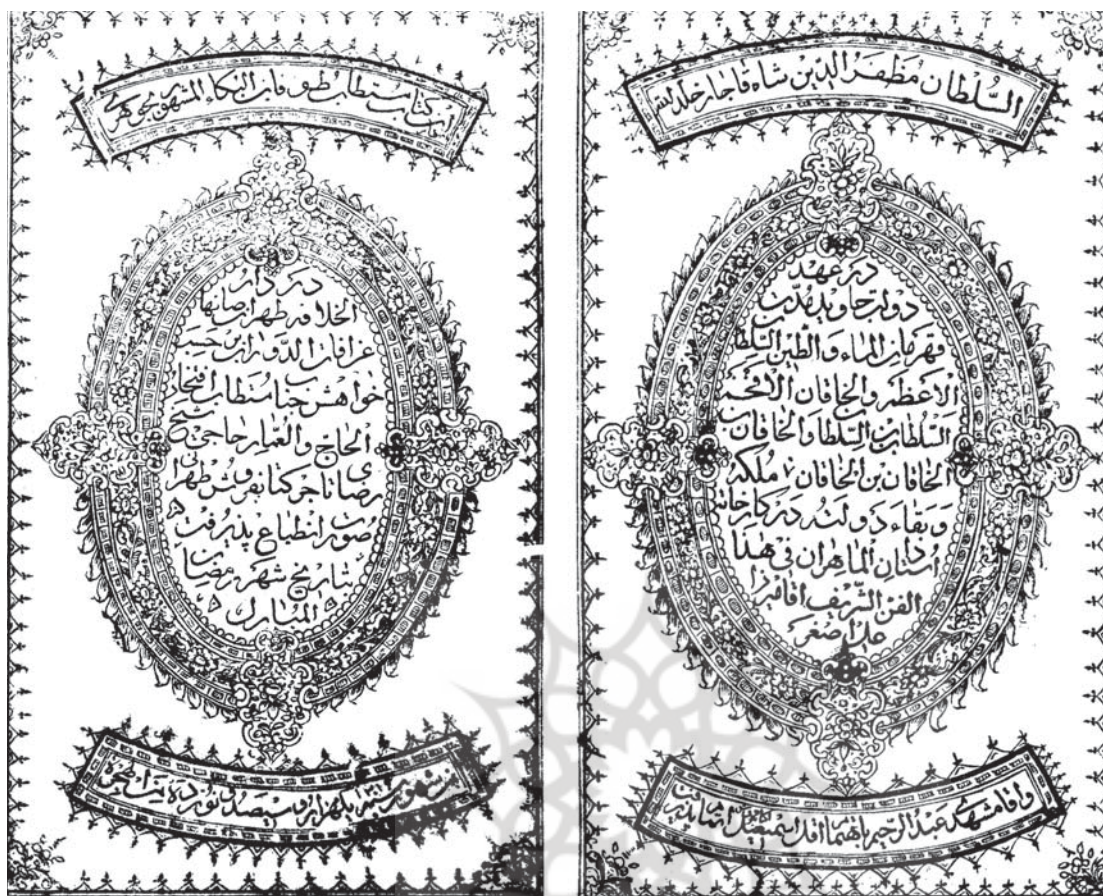 السلطان مظفر الدین شاه قاجار خلد الله
در عهد
دولت جاوید مهد
قهرمان الماء والطین السلطا
الاعظم والخاقان الافخم
السلطان السلطان والخاقان
الخاقان بن الخاقان ملکه
و بقاء دولته در کارخانه
استادان الماهران فی هذا
الفن الشریف اقا میرزا
علی اصغر
و اقا مشهدی عبد الرحیم باهتمام اقل اسمعیل
کتاب مستطاب طوفان البکاء المشهور بجوهری
در دار
الخلافه طهران صانها
عن افات الدوران بر حسب
خواهش جناب مستطاب افتخا
الحاج والعمار حاجی شیخ
رضای تاجر کتابفروش طهرا
صورت انطباع پذیرفت
بتاریخ شهر رمضان
المبارک
شهور یکهزار و سیصد نوزده من